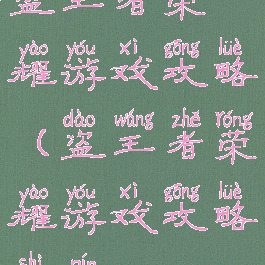 盗王者荣
yào yóu xì gōng lüè
耀游戏攻略
dào wáng zhě róng
(盗王者荣
yào yóu xì gōng lüè
耀游戏攻略
shì pín